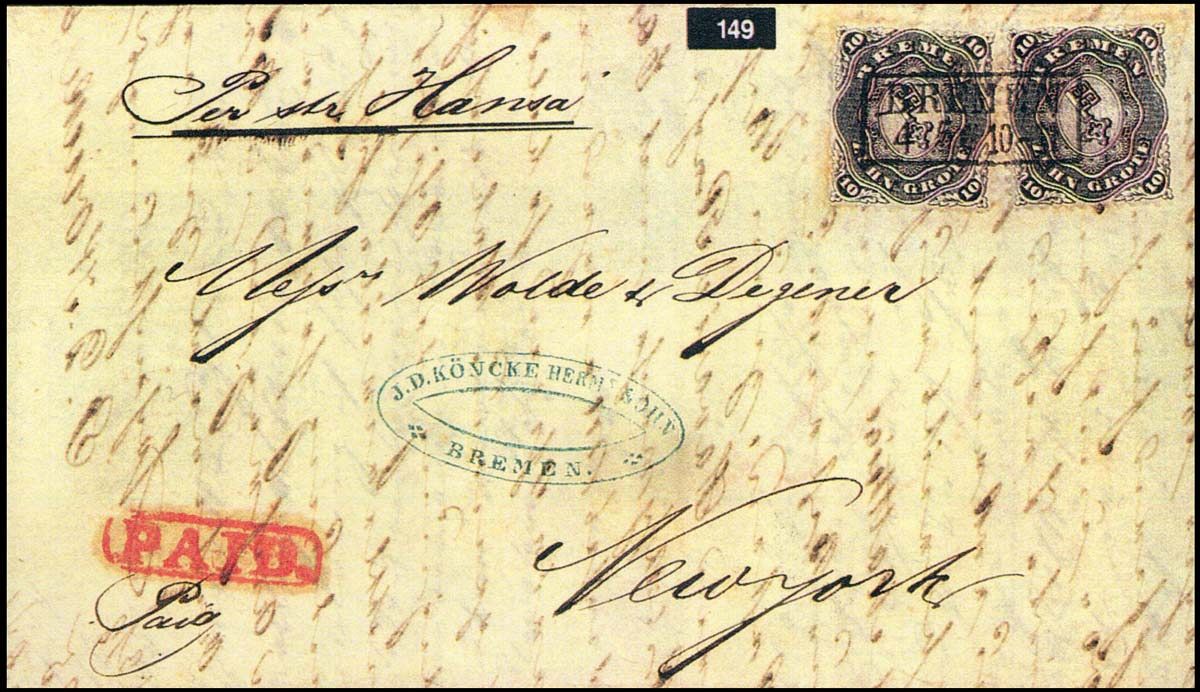 149
10 BREMEN 10
10 ZEHN GROTE 10
10 BREMEN 10
10 ZEHN GROTE 10
BREMEN
10
Per str. Hansa
Messrs Wolde & Degener
J. D. KÖNCKE HERMS SOHN
BREMEN.
New York
PAID.
Paid